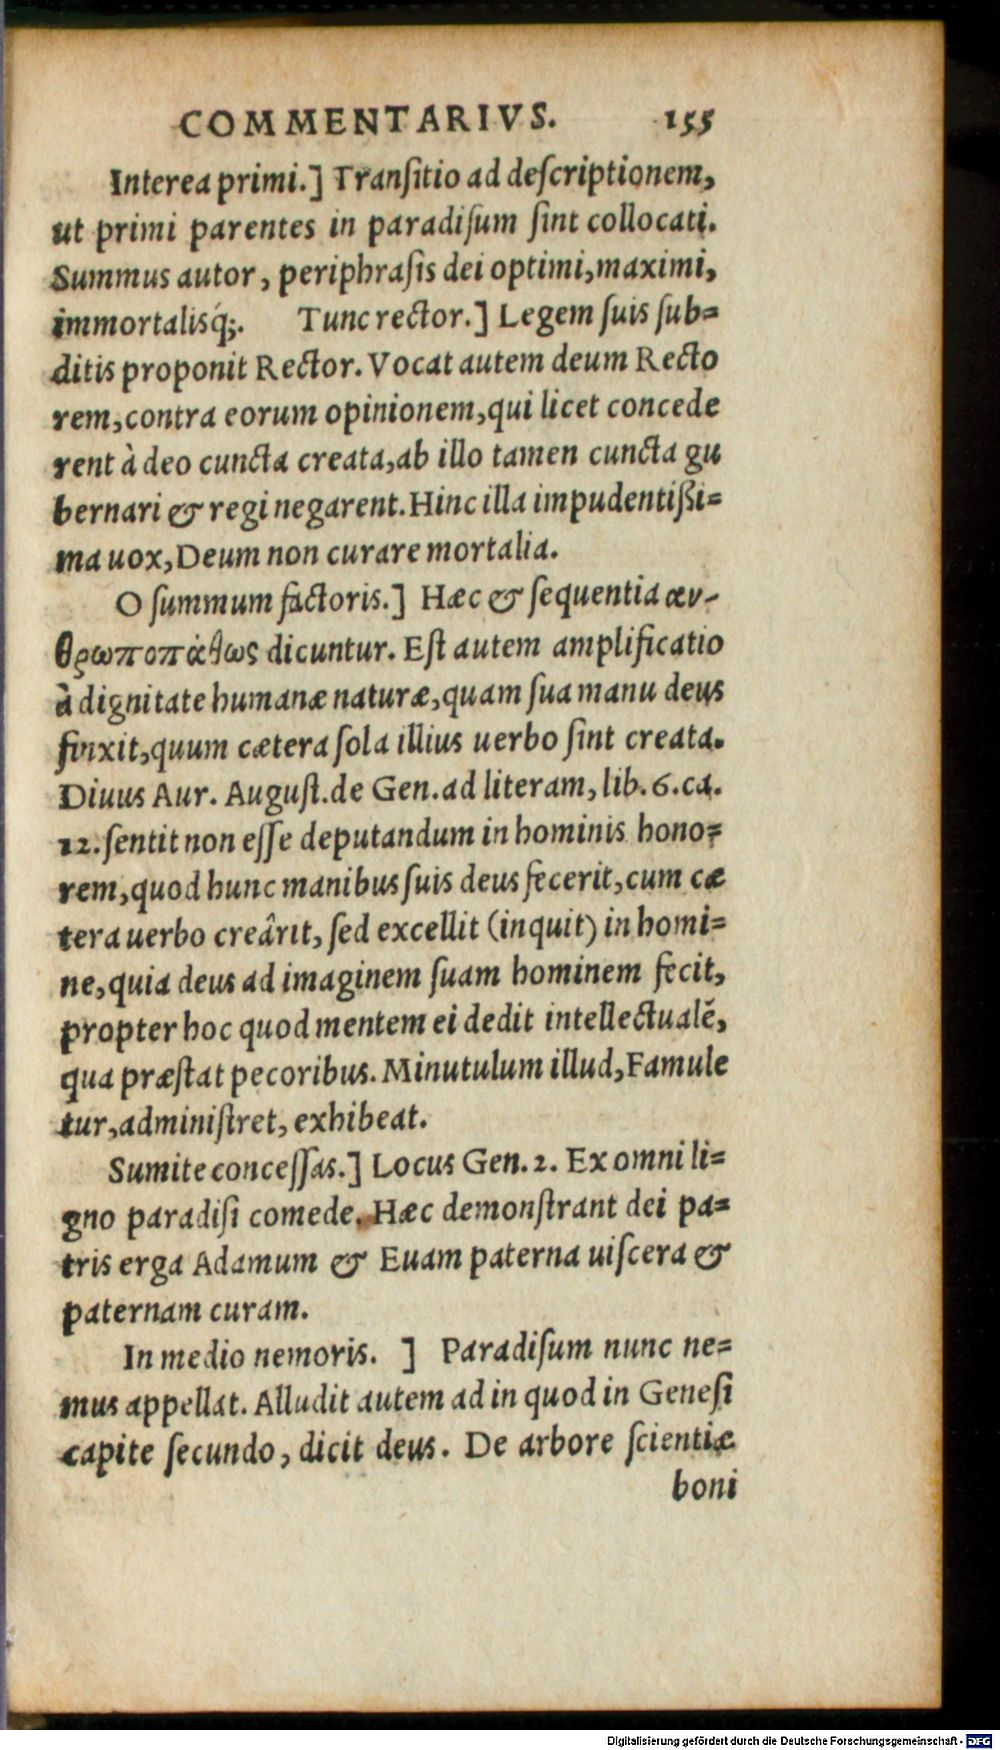 COMMENTARIVS. 155
Interea primi.] Tranſitio ad deſcriptionem,
ut primi parentes in paradiſum ſint collocati.
Summus autor, periphraſis dei optimi, maximi,
immortalisq́;. Tunc rector.] Legem ſuis ſub=
ditis proponit Rector. Vocat autem deum Recto
rem, contra eorum opinionem, qui licet concede
rent à deo cuncta creata, ab illo tamen cuncta gu
bernari & regi negarent. Hinc illa impudentißi=
ma uox, Deum non curare mortalia.
O ſummum factoris.] Hæc & ſequentia αν-
θρωποπάθως dicuntur. Eſt autem amplificatio
à dignitate humanæ naturæ, quam ſua manu deus
finxit, quum cætera ſola illius uerbo ſint creata.
Diuus Aur. Auguſt. de Gen. ad literam, lib. 6. ca.
12. ſentit non eſſe deputandum in hominis hono=
rem, quod hunc manibus ſuis deus fecerit, cum cæ
tera uerbo creârit, ſed excellit (inquit) in homi=
ne, quia deus ad imaginem ſuam hominem fecit,
propter hoc quod mentem ei dedit intellectualẽ,
qua præſtat pecoribus. Minutulum illud, Famule
tur, adminiſtret, exhibeat.
Sumite conceſſas.] Locus Gen. 2. Ex omni li=
gno paradiſi comede. Hæc demonſtrant dei pa=
tris erga Adamum & Euam paterna uiſcera &
paternam curam.
In medio nemoris. ] Paradiſum nunc ne=
mus appellat. Alludit autem ad in quod in Geneſi
capite ſecundo, dicit deus. De arbore ſcientiæ
boni
Digitalisierung gefördert durch die Deutsche Forschungsgemeinschaft - DFG